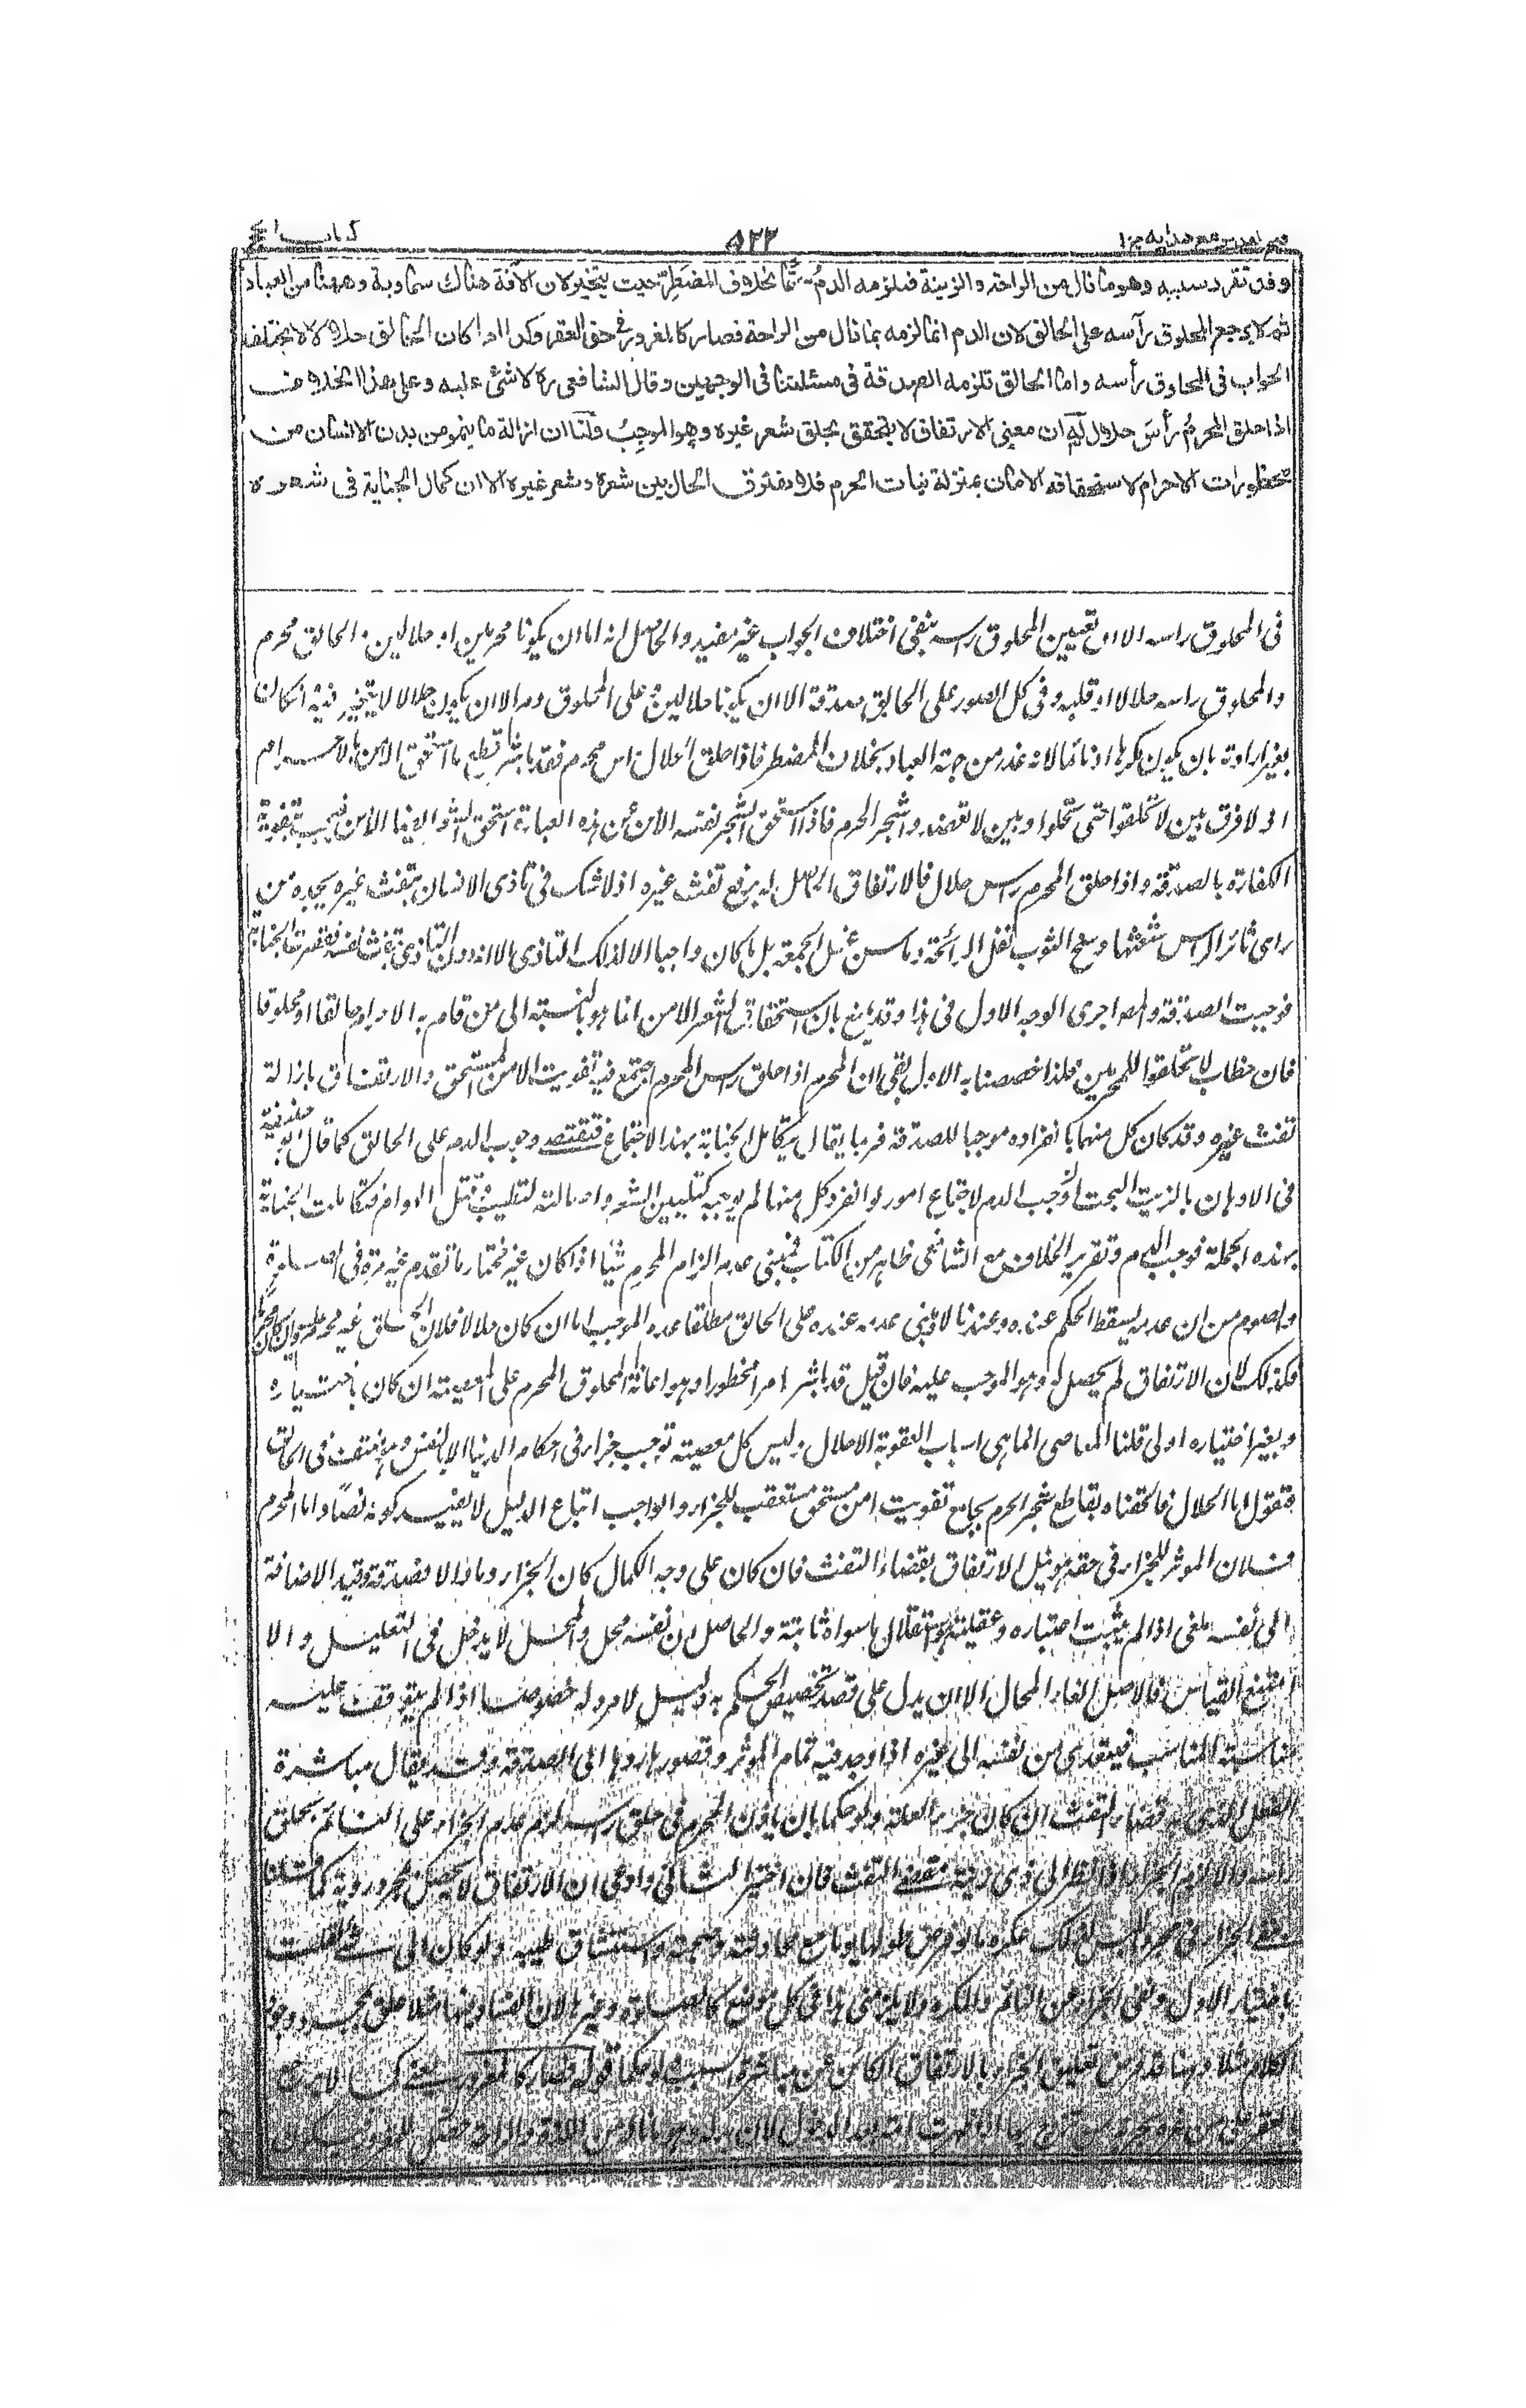 فتح القدير مع هدايه ج ١
٥٣٣
كتاب الحج
وقد تقرر سببه وهو ما نال من الراحة والزينة فيلزمه الدم حتما بخلاف المضطر حيث يتخير لان الآفة هناك سماوية وههنا من العباد
ثم لا يرجع المحلوق رأسه على الحالق لان الدم انما لزمه بما نال من الراحة فصار كالمغرور في حق العقر وكذا اذا كان الحالق حلالا لا يختلف
الجواب في المحلوق رأسه واما الحالق تلزمه الصدقة في مسئلتنا في الوجهين وقال الشافعي ره لا شئ عليه وعلى هذا الخلاف
اذا حلق المحرم رأس حلال له ان معنى الارتفاق لا يتحقق بحلق شعر غيره وهو الموجب ولنا ان ازالة ما ينمو من بدن الانسان من
محظورات الاحرام لاستحقاقه الامان بمنزلة نبات الحرم فلا يفترق الحال بين شعره وشعر غيره الا ان كمال الجناية في شعره
في المحلوق راسه الا ان تعيين المحلوق راسه ينفي اختلاف الجواب غير مفيد والحاصل انه اما ان يكونا محرمين او حلالين او الحالق محرم
والمحلوق راسه حلالا او قلبه وفي كل الصور على الحالق صدقة الا ان يكونا حلالين وعلى المحلوق دم الا ان يكون حلالا لا يتخير فيه اذا كان
بغير ارادته بان يكون مكرها او نائما لانه عذر من جهة العباد بخلاف المضطر فاذا حلق الحلال راس محرم فقد باشر قطع ما استحق الامن بالاحرام
اذ لا فرق بين لا تحلقوا حتى تحلوا وبين لا تعضدوا شجر الحرم فاذا استحق الشجر نفسه الامن من هذه العبارة استحق الشعر ايضا الامن فيجب بتفويته
الكفارة بالصدقة واذا حلق المحرم راس حلال فالارتفاق الحاصل له برفع تفث غيره اذ لا شك في تاذي الانسان بتفث غيره يجده من
راى ثائر الراس شعثها وسخ الثوب تفل الرائحة وما سن غسل الجمعة بل ما كان واجبا الا لذلك التاذي الا انه دون التاذي بتفث نفسه فقصرت الجناية
فوجبت الصدقة والمص اجرى الوجه الاول في هذا وقد يمنع بان استحقاق الشعر الامن انما هو بالنسبة الى من قام به الاحرام حالقا او محلوقا
فان خطاب لا تحلقوا للمحرمين فلذا خصصنا به الاول بقى ان المحرم اذا حلق راس المحرم اجتمع فيه تفويت الامن المستحق والارتفاق بازالة
تفث غيره وقد كان كل منهما بانفراده موجبا للصدقة فربما يقال تتكامل الجناية بهذا الاجتماع فتقتضي وجوب الدم على الحالق كما قال ابو حنيفة
في الادهان بالزيت البحت اوجب الدم لاجتماع امور لو انفرد كل منها لم يوجبه كتليين الشعر واصالته لتطييب وقتل الهوام فتكاملت الجناية
بهذه الجملة فوجب الدم وتقرير الخلاف مع الشافعي ظاهر من الكتاب فمبنى عدم الزام المحرم شيئا اذا كان غير مختار ما تقدم غير مرة في الصلوة
والصوم من ان عدمه يسقط الحكم عنده وعندنا لا
فكذلك لان الارتفاق لم يحصل له وهو الموجب عليه فان قيل قد باشر امرا محظورا وهو اعانة المحلوق المحرم على المعصية ان كان باختياره
وبغير اختياره اولى قلنا المعاصي انما هي اسباب العقوبة الاحلال وليس كل معصية توجب جزاء في احكام الدنيا الا بالنص وهو منتف في الحالق
فنقول اما الحلال فالحقناه بقاطع شجر الحرم بجامع تفويت امن مستحق مستعقب للجزاء والواجب اتباع الدليل لا بقيد كونه نصا واما المحرم
فلان الموثر للجزاء في حقه هو نيل الارتفاق بقضاء التفث فان كان على وجه الكمال كان الجزاء دما والا فصدقة وقيد الاضافة
الى نفسه ملغى اذا لم يثبت اعتباره وعقلية استقلال ما سواه ثابتة والحاصل ان نفسه محل والمحل لا يدخل في التعليل والا
امتنع القياس فالاصل الغاء المحال الا ان يدل على قصد تخصيص الحكم به دليل لا مرد له خصوصا اذا لم يتوقف عليه
مناسبة المناسب فيتعدى من نفسه الى غيره اذا وجد فيه تمام الموثر وقصور ردها الى الصدقة وقد يقال مباشرة
الفعل الذي به قضاء التفث ان كان جزء العلة ولو حكما بان ياذن المحرم في حلق راسه لزم عدم الجزاء على النائم بحلق
راسه والا لزم الجزاء اذا نظر الى ذي زينة مقضي التفث فان اختير الثاني وادعى ان الارتفاق لا يحصل بمجرد رؤية
باختيار الاول ونفي الجزاء عن النائم والمكره